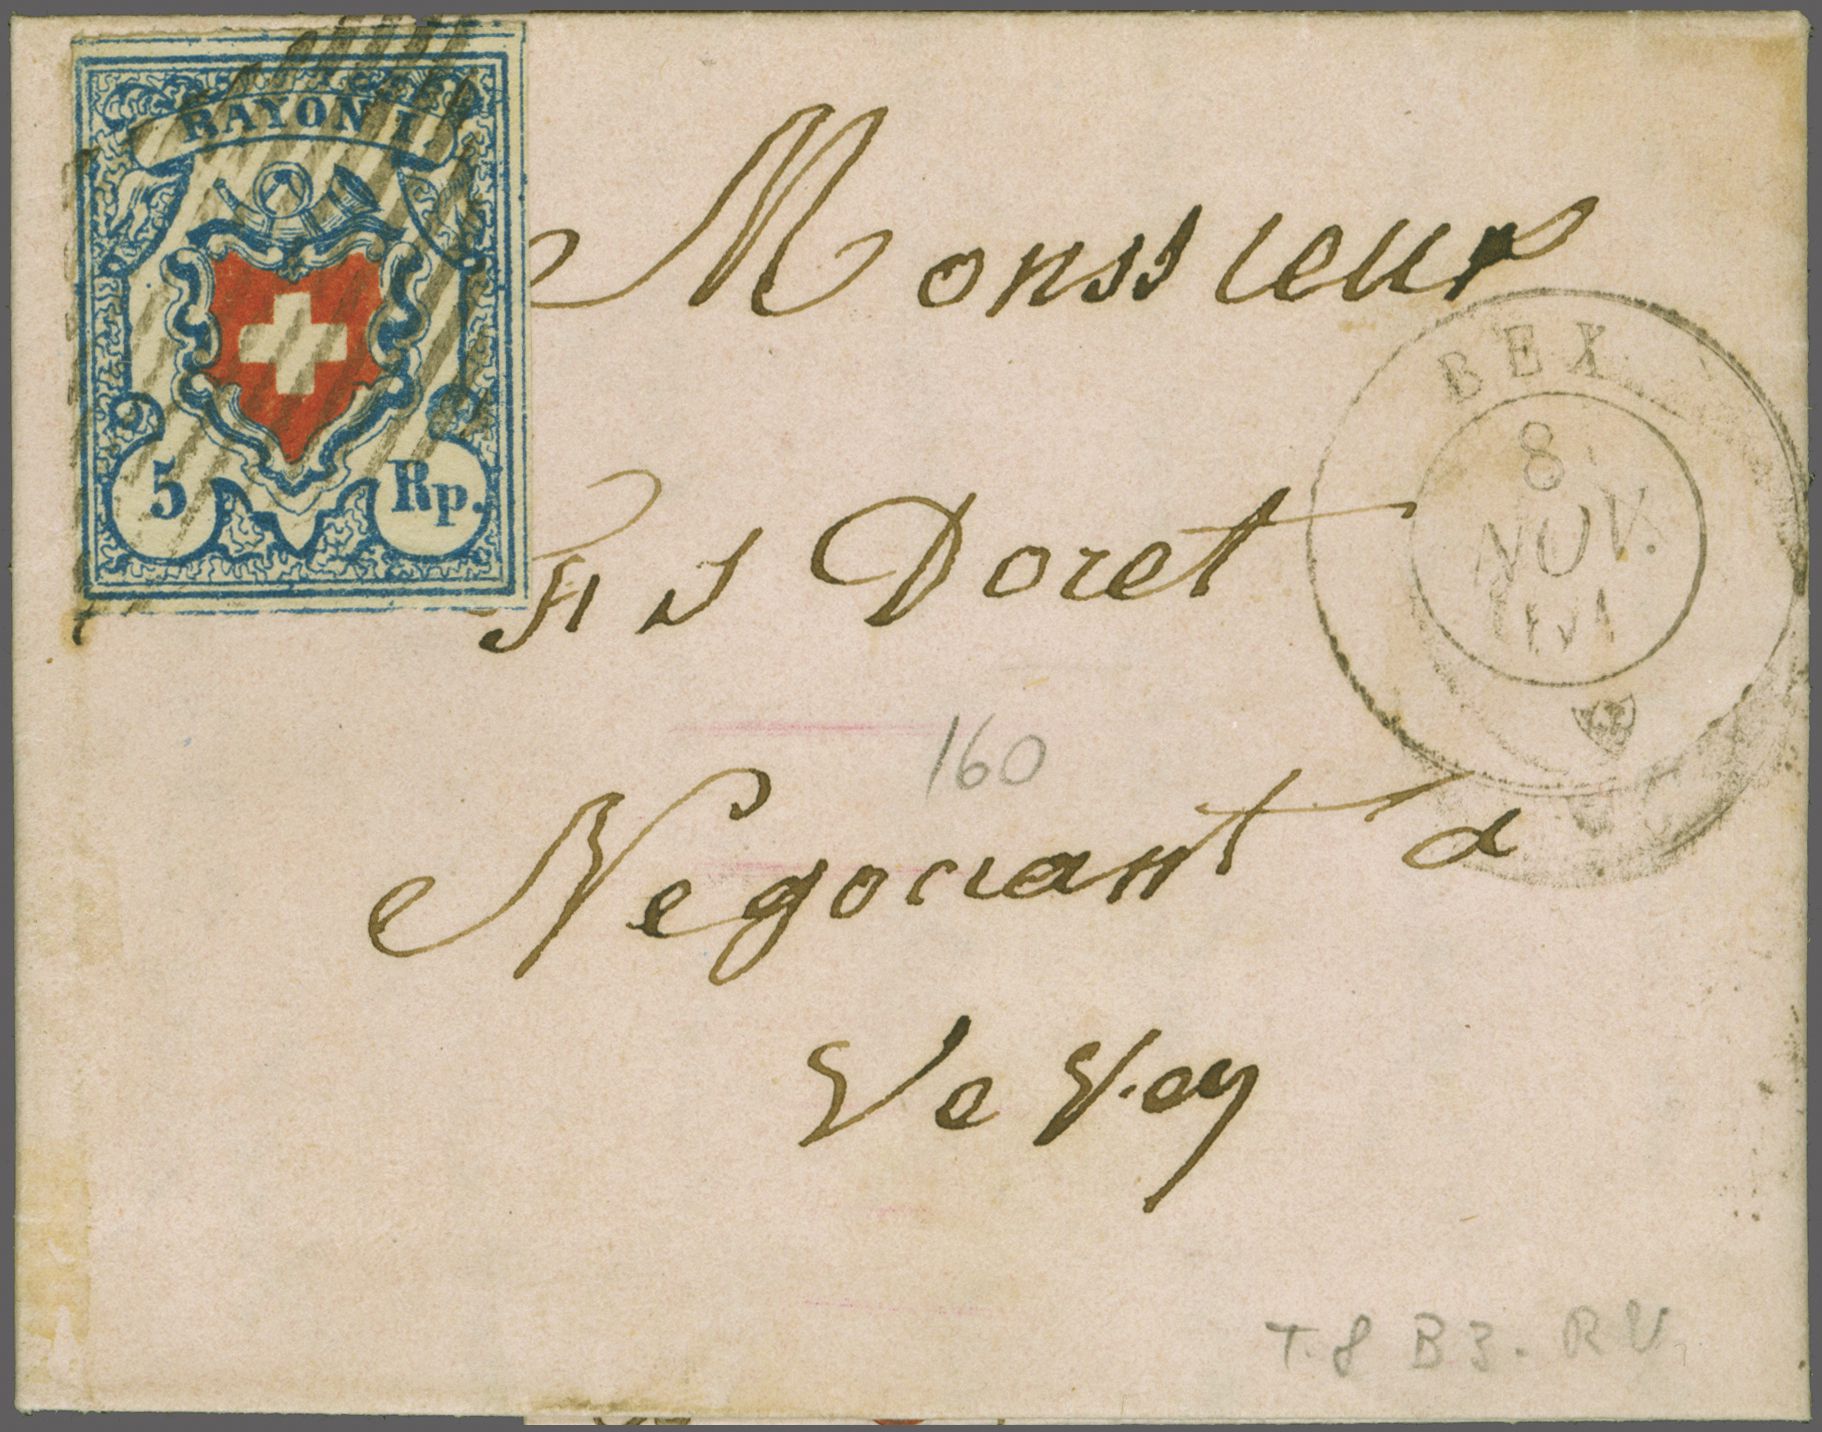 RAYON I
5 Rp.
Monsieur
Fis Doret
BEX
8
NOV.
1851
160
Negociant a
Vevey
T.8 B3. RU.